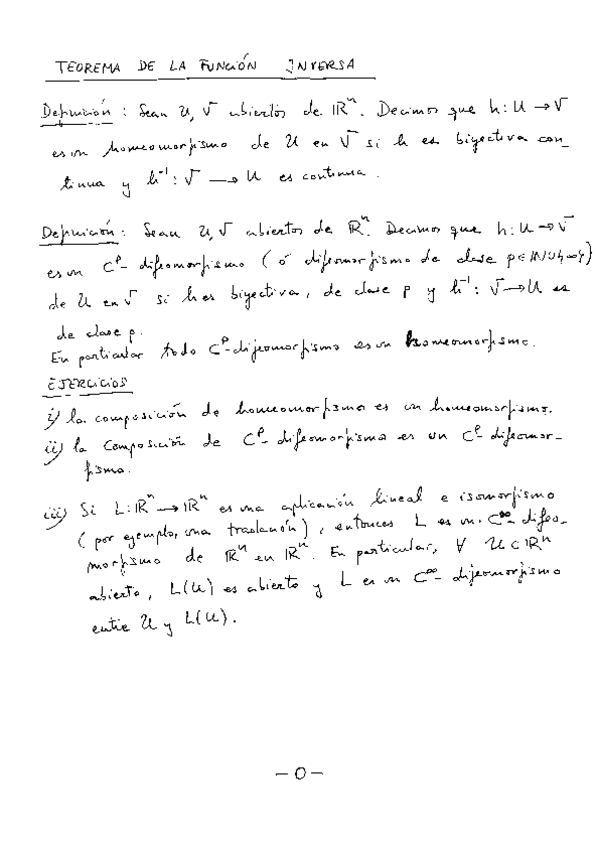 TEOREMA DE LA FUNCIÓN INVERSA
Definición : Sean U, V abiertos de ℝⁿ. Decimos que h: U → V
es un homeomorfismo de U en V si h es biyectiva con_
tinua y h⁻¹: V → U es continua.
Definición : Sean U, V abiertos de ℝⁿ. Decimos que h: U → V
es un Cᵖ- difeomorfismo ( ó difeomorfismo de clase p∈ℕ∪{∞})
de U en V si h es biyectiva, de clase p y h⁻¹: V → U es
de clase p.
En particular todo Cᵖ-difeomorfismo es un homeomorfismo.
EJERCICIOS
i) la composición de homeomorfismo es un homeomorfismo.
ii) la composición de Cᵖ- difeomorfismo es un Cᵖ- difeomor_
fismo.
iii) Si L: ℝⁿ → ℝⁿ es una aplicación lineal e isomorfismo
( por ejemplo, una traslación ) , entonces L es un C^∞- difeo_
morfismo de ℝⁿ en ℝⁿ. En particular, ∀ U⊂ℝⁿ
abierto, L(U) es abierto y L es un C^∞- difeomorfismo
entre U y L(U).
– 0 –